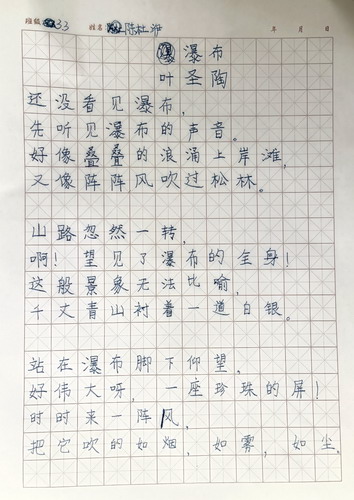 班级 33 姓名 陈杜 年 月 日
瀑布
叶圣陶
还没看见瀑布，
先听见瀑布的声音。
好像叠叠的浪涌上岸滩，
又像阵阵风吹过松林。
山路忽然一转，
啊！望见了瀑布的全身！
这般景象无法比喻，
千丈青山衬着一道白银。
站在瀑布脚下仰望，
好伟大呀，一座珍珠的屏！
时时来一阵风，
把它吹的如烟，如雾，如尘。